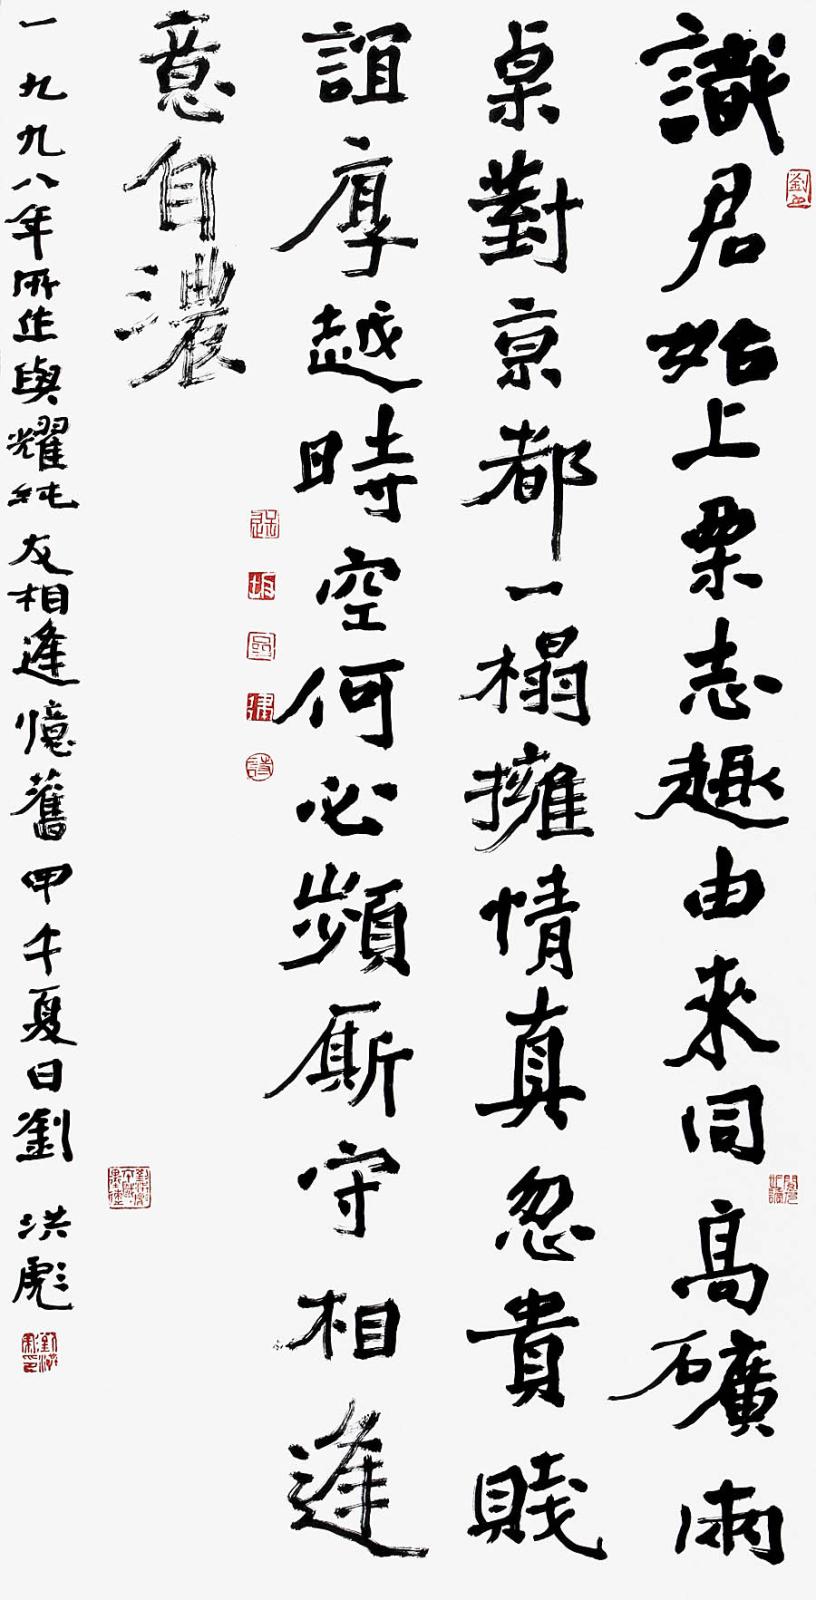 識君始上栗志趣由來同高礦兩
桌對京都一榻擁情真忽貴賤
誼厚越時空何必頻厮守相逢
意自濃
一九九八年所作與耀純友相逢憶舊甲午夏日劉洪彪